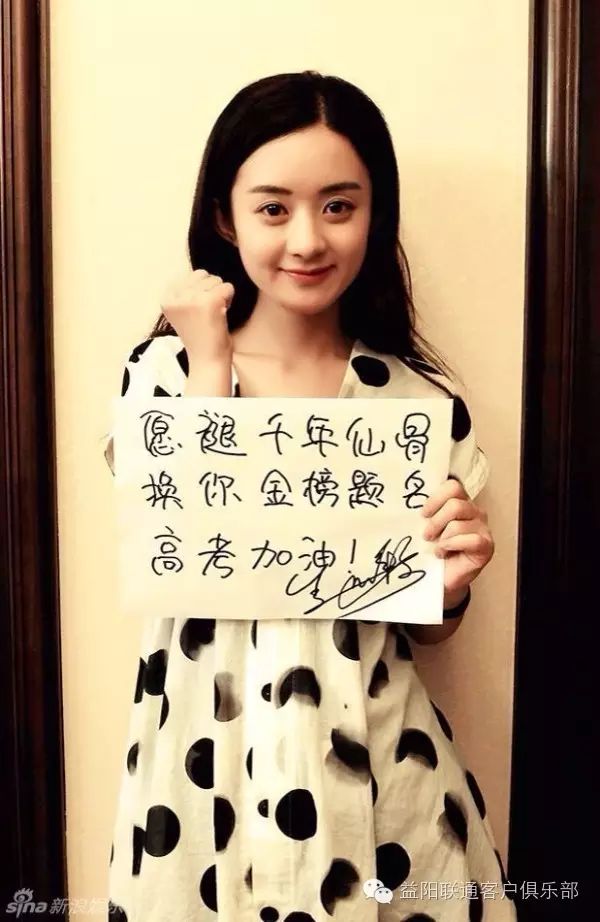 愿褪千年仙骨
换你金榜题名
高考加油!
sina新浪娱乐
益阳联通客户俱乐部